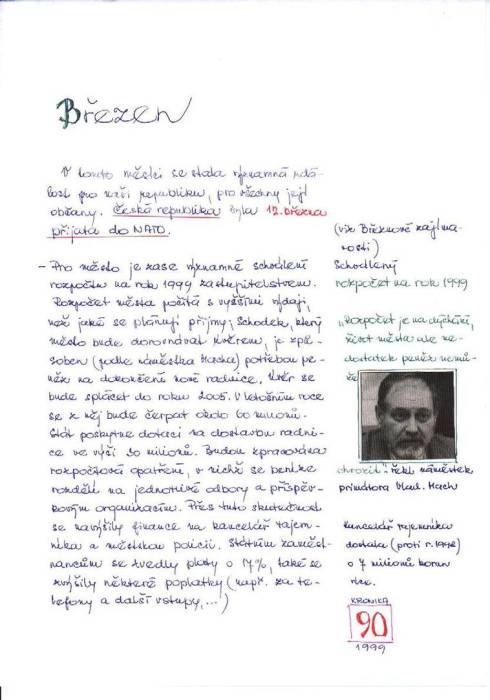 Březen
V tomto měsíci se stala významná udá-
lost pro naši republiku, pro všechny její
občany. Česká republika byla 12. března
přijata do NATO.
(viz Březnové zajíma-
vosti)
- Pro město je zase významné schválení
rozpočtu na rok 1999 zastupitelstvem.
Rozpočet města počítá s vyššími výdaji,
než jaké se plánují příjmy; Schodek, který
město bude dorovnávat úvěrem, je způ-
soben (podle náměstka Macha) potřebou pe-
něz na dokončení nové radnice. Úvěr se
bude splácet do roku 2005. V letošním roce
se z něj bude čerpat okolo 60 milionů.
Stát poskytne dotaci na dostavbu radni-
ce ve výši 30 milionů. Budou zpracována
rozpočtová opatření, v nichž se peníze
rozdělí na jednotlivé odbory a příspěv-
kovým organizacím. Přes tuto skutečnost
se navýšily finance na kancelář tajem-
níka a městskou policii. Státním zaměst-
nancům se zvedly platy o 17%, také se
zvýšily některé poplatky (např. za te-
lefony a další vstupy,...)
Schválený
rozpočet na rok 1999
"Rozpočet je na dýchání,
život města ale ne-
dostatek peněz nemů-
že
ohrozit." řekl náměstek
primátora Vlad. Mach
Kancelář tajemníka
dostala (proti r. 1998)
o 7 milionů korun
více.
KRONIKA
90
1999